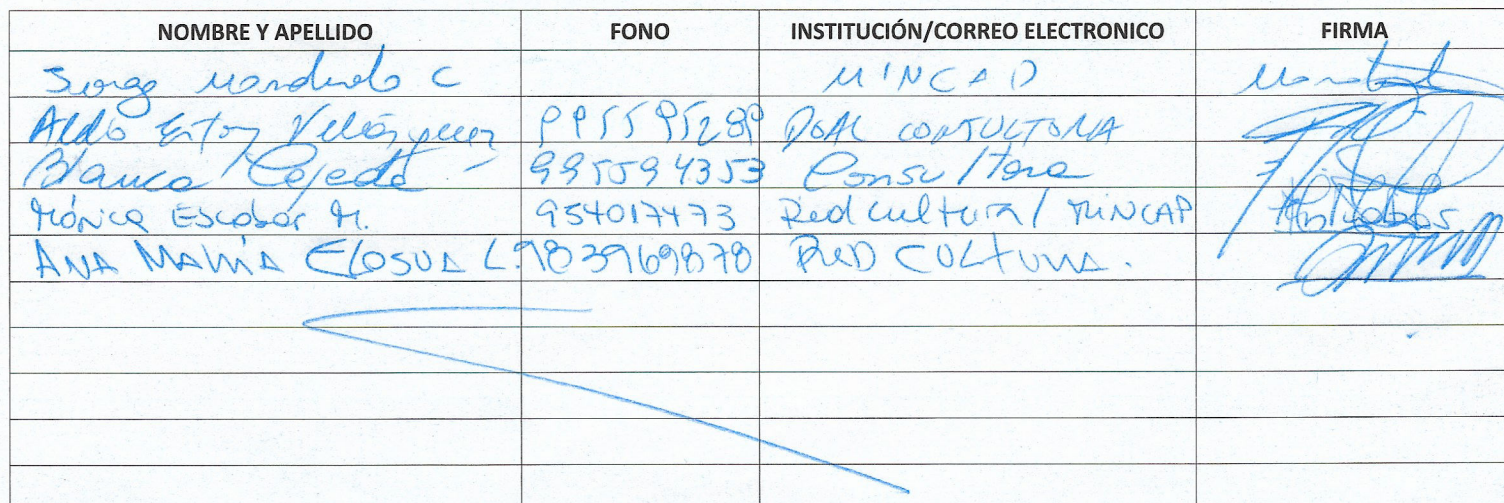 NOMBRE Y APELLIDO FONO INSTITUCIÓN/CORREO ELECTRONICO FIRMA
C MINCAP
Aldo Velásquez 995595289 DOAL CONSULTORIA
Blanca Tejeda 995594353 Consultora
Mónica Escobar M. 954017473 Red cultura / MINCAP
ANA MARÍA ELOSUA L. 983969878 RED CULTURA.